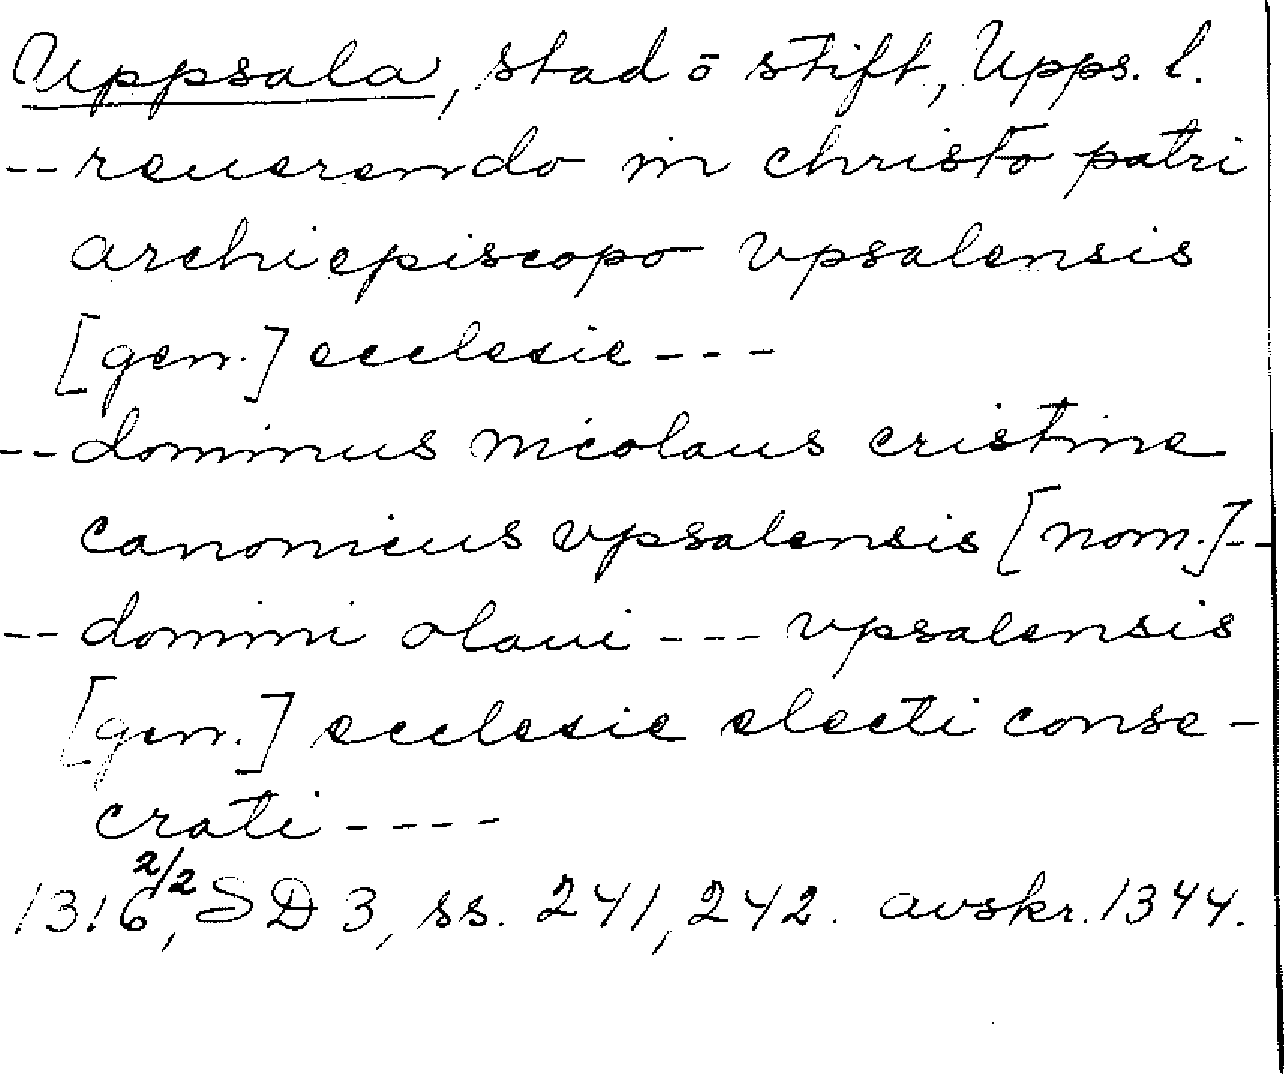 Uppsala, stad ō stift, Upps. l.
-- reuerendo in christo patri
archiepiscopo vpsalensis
[gen.] ecclesie ---
-- dominus nicolaus cristine
canonicus vpsalensis [nom.] --
-- domini olaui --- vpsalensis
[gen.] ecclesie electi conse-
crati ----
1316 2/2, SD 3, ss. 241, 242. avskr. 1344.